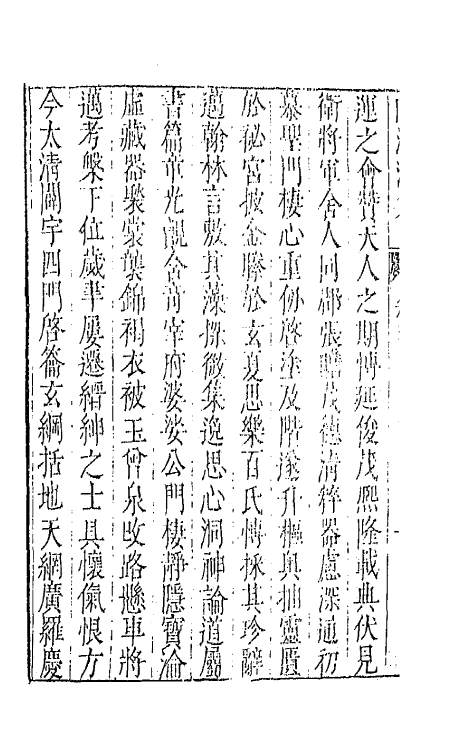 運之會贊大人之期博延俊茂熙隆載典伏見
衛將軍舍人同郡張贍茂德清粹器慮深通初
慕聖門棲心重仞啓塗及階遂升樞奥抽靈匱
於秘宮披金縢於玄夏思樂百氏博採其珍辭
邁翰林言敷其藻探微集逸思心洞神論道屬
書篇章光覿含竒宰府婆娑公門棲靜隱寶淪
虛藏器褧裳襲錦褐衣被玉曾泉改路懸車將
邁考槃下位歲聿屢遷縉紳之士具懷愾恨方
今太清闢宇四門啓籥玄綱括地天網廣羅慶